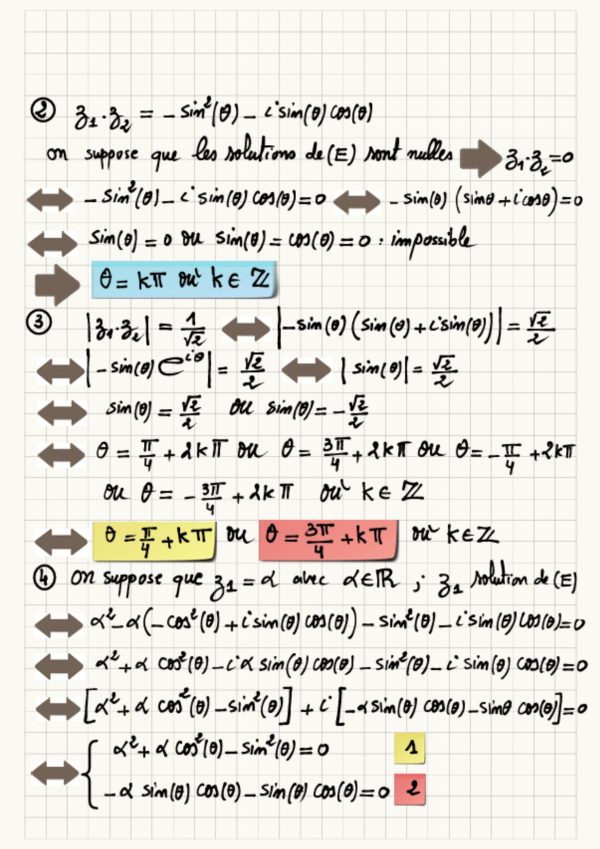 ② z₁·z₂ = -sin²(θ) - i sin(θ) cos(θ)
on suppose que les solutions de (E) sont nulles ⇒ z₁·z₂ = 0
⇔ -sin²(θ) - i sin(θ) cos(θ) = 0 ⇔ -sin(θ) (sinθ + i cosθ) = 0
⇔ sin(θ) = 0 ou sin(θ) = cos(θ) = 0 : impossible
⇒ θ = kπ où k ∈ ℤ
③ |z₁·z₂| = 1/√2 ⇔ |-sin(θ) (sin(θ) + i sin(θ))| = √2/2
⇔ |-sin(θ) e^{iθ}| = √2/2 ⇔ |sin(θ)| = √2/2
⇔ sin(θ) = √2/2 ou sin(θ) = -√2/2
⇔ θ = π/4 + 2kπ ou θ = 3π/4 + 2kπ ou θ = -π/4 + 2kπ
ou θ = -3π/4 + 2kπ où k ∈ ℤ
⇔ θ = π/4 + kπ ou θ = 3π/4 + kπ où k ∈ ℤ
④ on suppose que z₁ = α avec α ∈ ℝ ; z₁ solution de (E)
⇔ α² - α(-cos²(θ) + i sin(θ) cos(θ)) - sin²(θ) - i sin(θ) cos(θ) = 0
⇔ α² + α cos²(θ) - i α sin(θ) cos(θ) - sin²(θ) - i sin(θ) cos(θ) = 0
⇔ [α² + α cos²(θ) - sin²(θ)] + i [-α sin(θ) cos(θ) - sinθ cos(θ)] = 0
⇔ { α² + α cos²(θ) - sin²(θ) = 0 1
-α sin(θ) cos(θ) - sin(θ) cos(θ) = 0 2